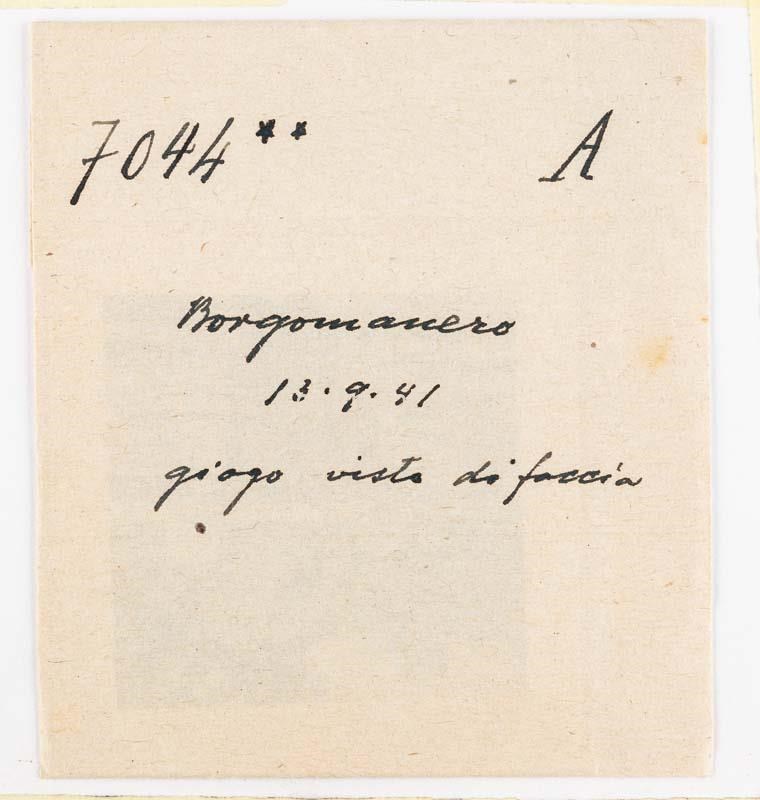 7044** A
Borgomanero
13.9.41
giogo visto di faccia